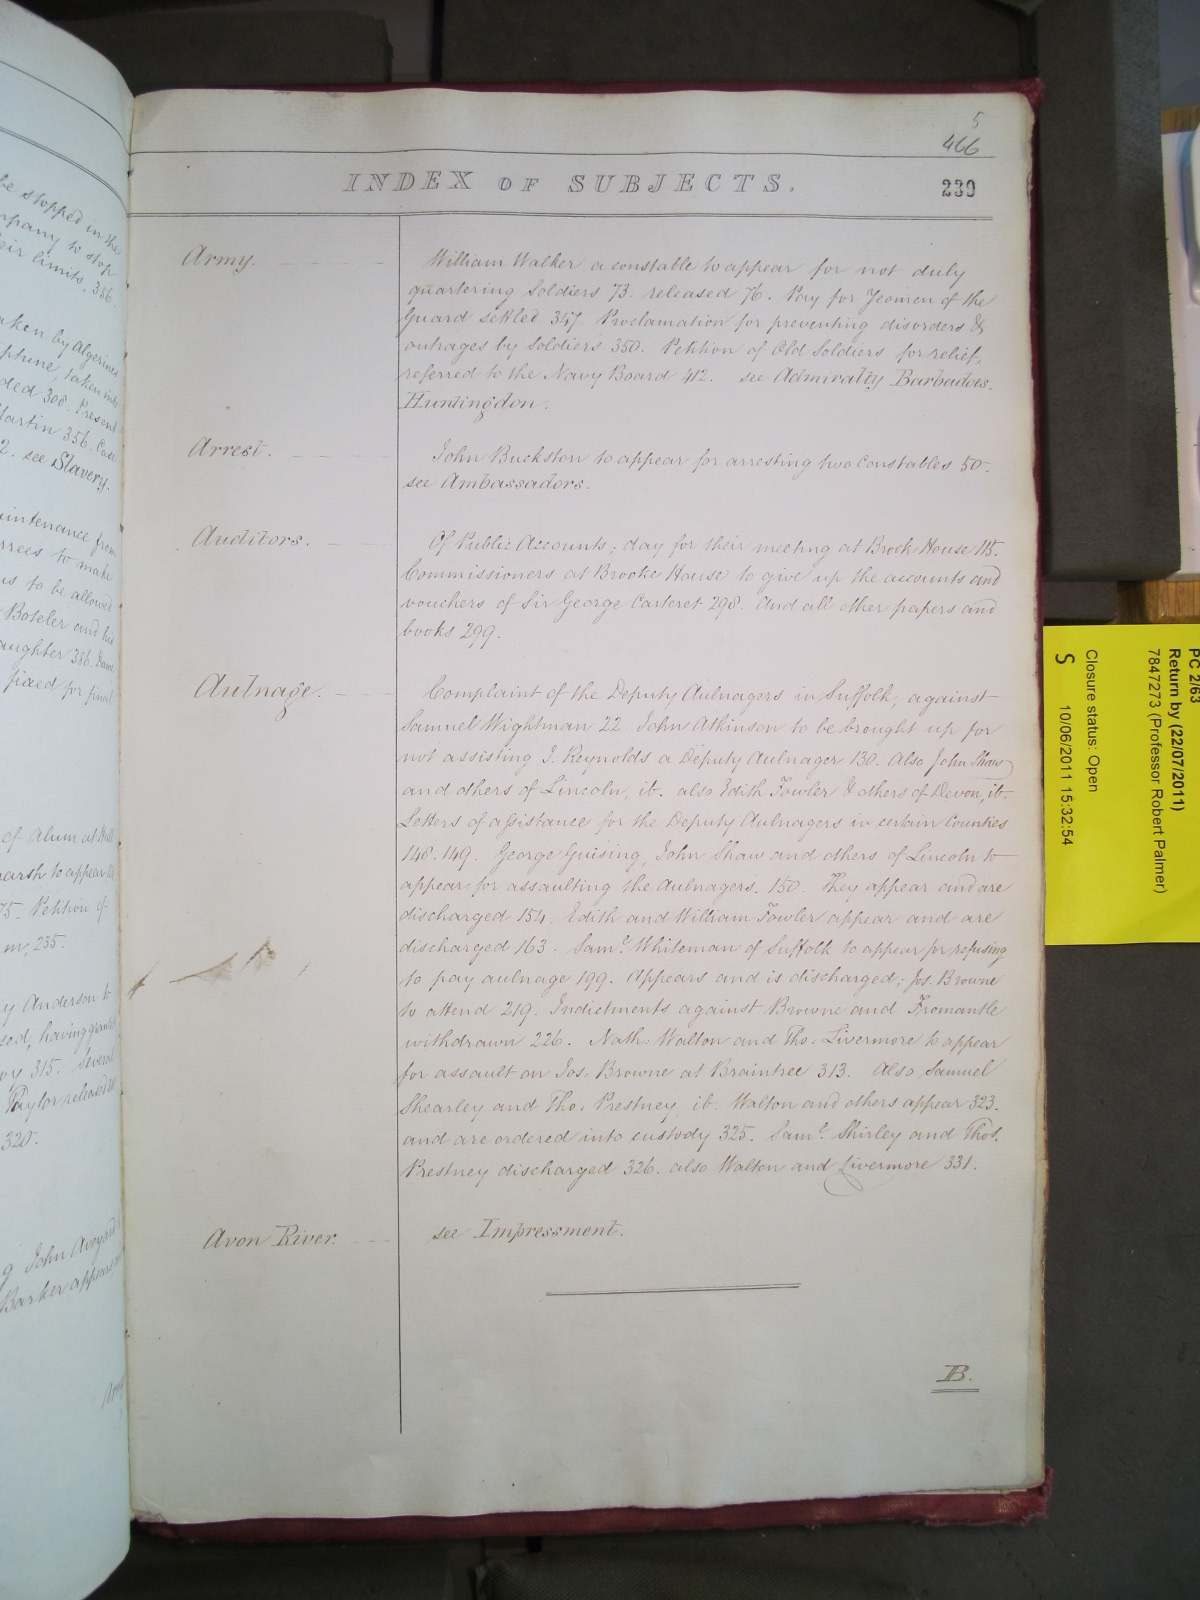 be stopped in the
mpany to stop
eir limits, 356.
aken by Algerines
ptune, taken into
ded 308. Present
Martin 356. Case
2. see Slavery.
intenance from
rrees to make
us to be allowed
Boteler and his
aughter 386.
fixed for final
of Alum at Hull
arsh to appear
75. Petition of
m, 235.
y Anderson to
sed, having granted
315. Several
Taylor released
320.
g John
Barker appears
5
466
INDEX OF SUBJECTS.
239
Army.
William Walker a constable to appear for not duly
quartering Soldiers 73. released 76. Pay for Yeomen of the
Guard settled 347. Proclamation for preventing disorders &
outrages by Soldiers 350. Petition of Old Soldiers for relief,
referred to the Navy Board 412. see Admiralty Barbadoes.
Huntingdon.
Arrest.
John Buckston to appear for arresting two Constables 50.
see Ambassadors.
Auditors.
Of Public Accounts; day for their meeting at Brook House 115.
Commissioners at Brooke House to give up the accounts and
vouchers of Sir George Carteret 298. And all other papers and
books 299.
Aulnage.
Complaint of the Deputy Aulnagers in Suffolk, against
Samuel Wightman 22 John Atkinson to be brought up for
not assisting J. Reynolds a Deputy Aulnager 130. Also John Shaw
and others of Lincoln, ib. also Edith Fowler & others of Devon, ib.
Letters of assistance for the Deputy Aulnagers in certain Counties
148. 149. George Guising, John Shaw and others of Lincoln to
appear for assaulting the Aulnagers. 150. They appear and are
discharged 154. Edith and William Fowler appear and are
discharged 163. Saml. Whiteman of Suffolk to appear for refusing
to pay aulnage 199. Appears and is discharged; Jos. Browne
to attend 219. Indictments against Browne and Fromantle
withdrawn 226. Nath: Walton and Tho: Livermore to appear
for assault on Jos: Browne at Braintree 313. Also Samuel
Shearley and Tho: Prestney ib. Walton and others appear 323.
and are ordered into custody 325. Saml. Shirley and Thos.
Prestney discharged 326. also Walton and Livermore 331.
Avon River.
see Impressment.
B.
PC 2/63
Return by (22/07/2011)
7847273 (Professor Robert Palmer)
Closure status: Open
S
10/06/2011 15:32:54